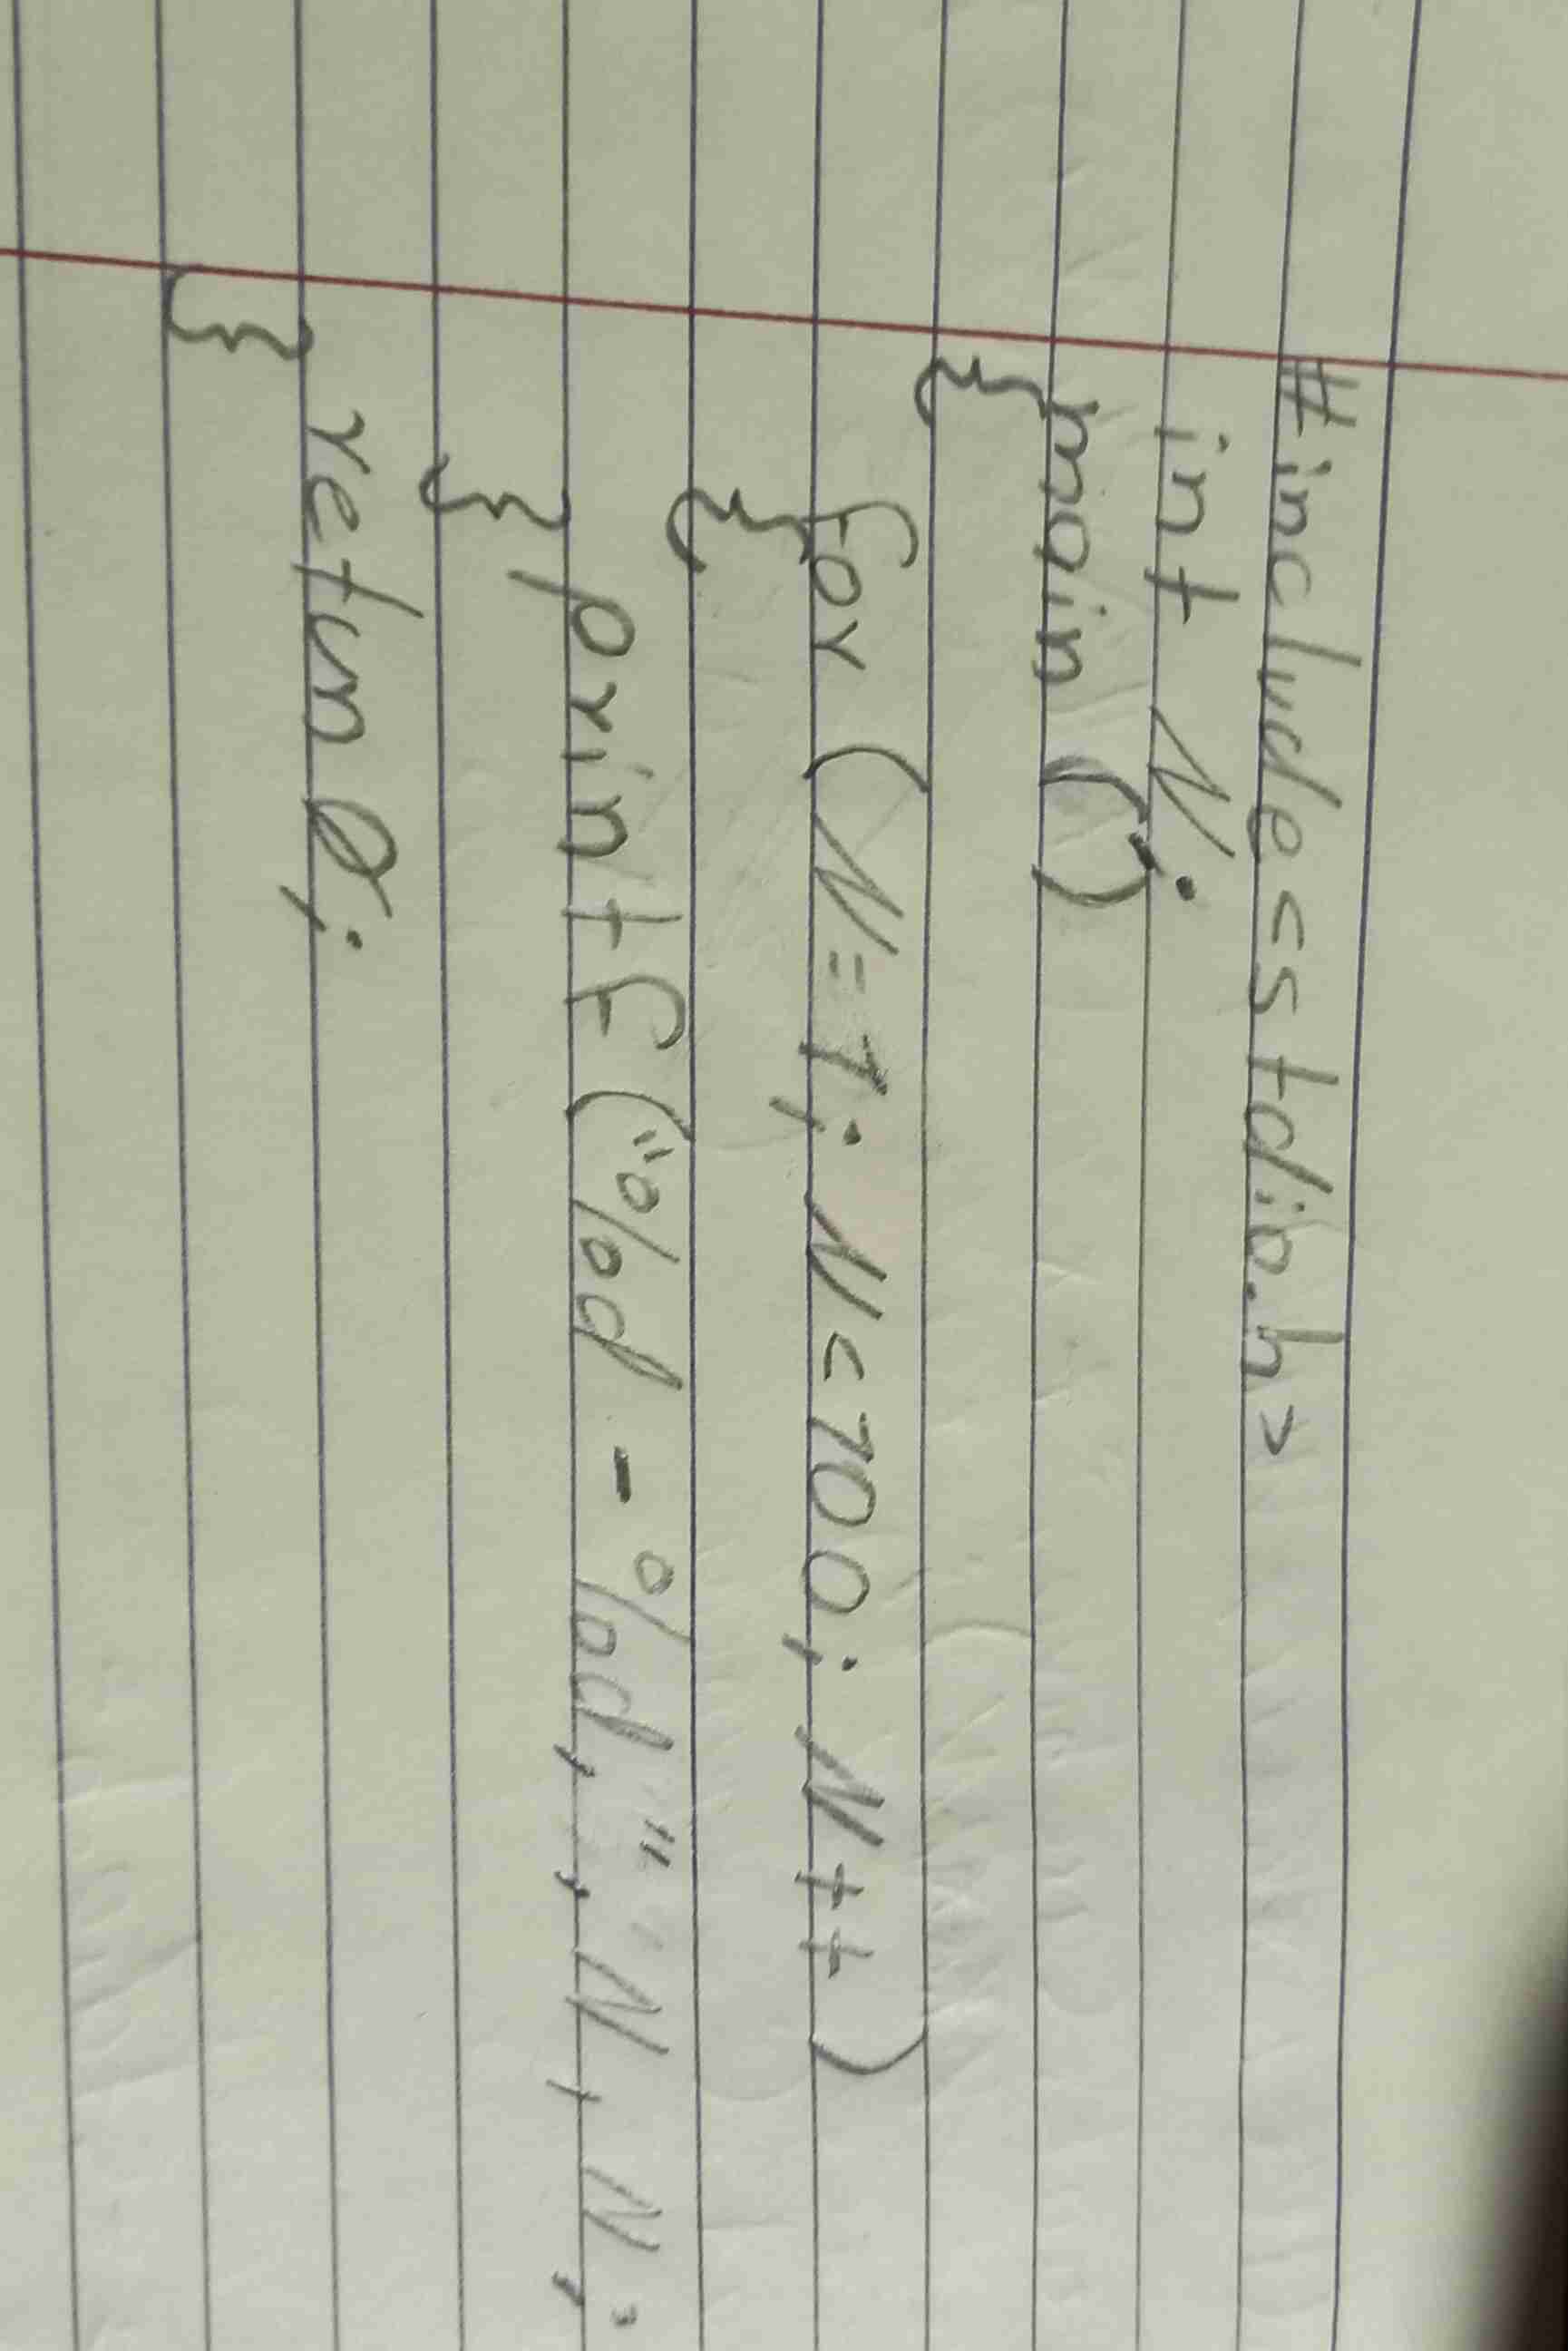 #include <stdio.h>
int N;
main ()
{
for (N=1; N<100; N++)
{
printf ("%d - %d, ", N, N;
}
retun 0;
}